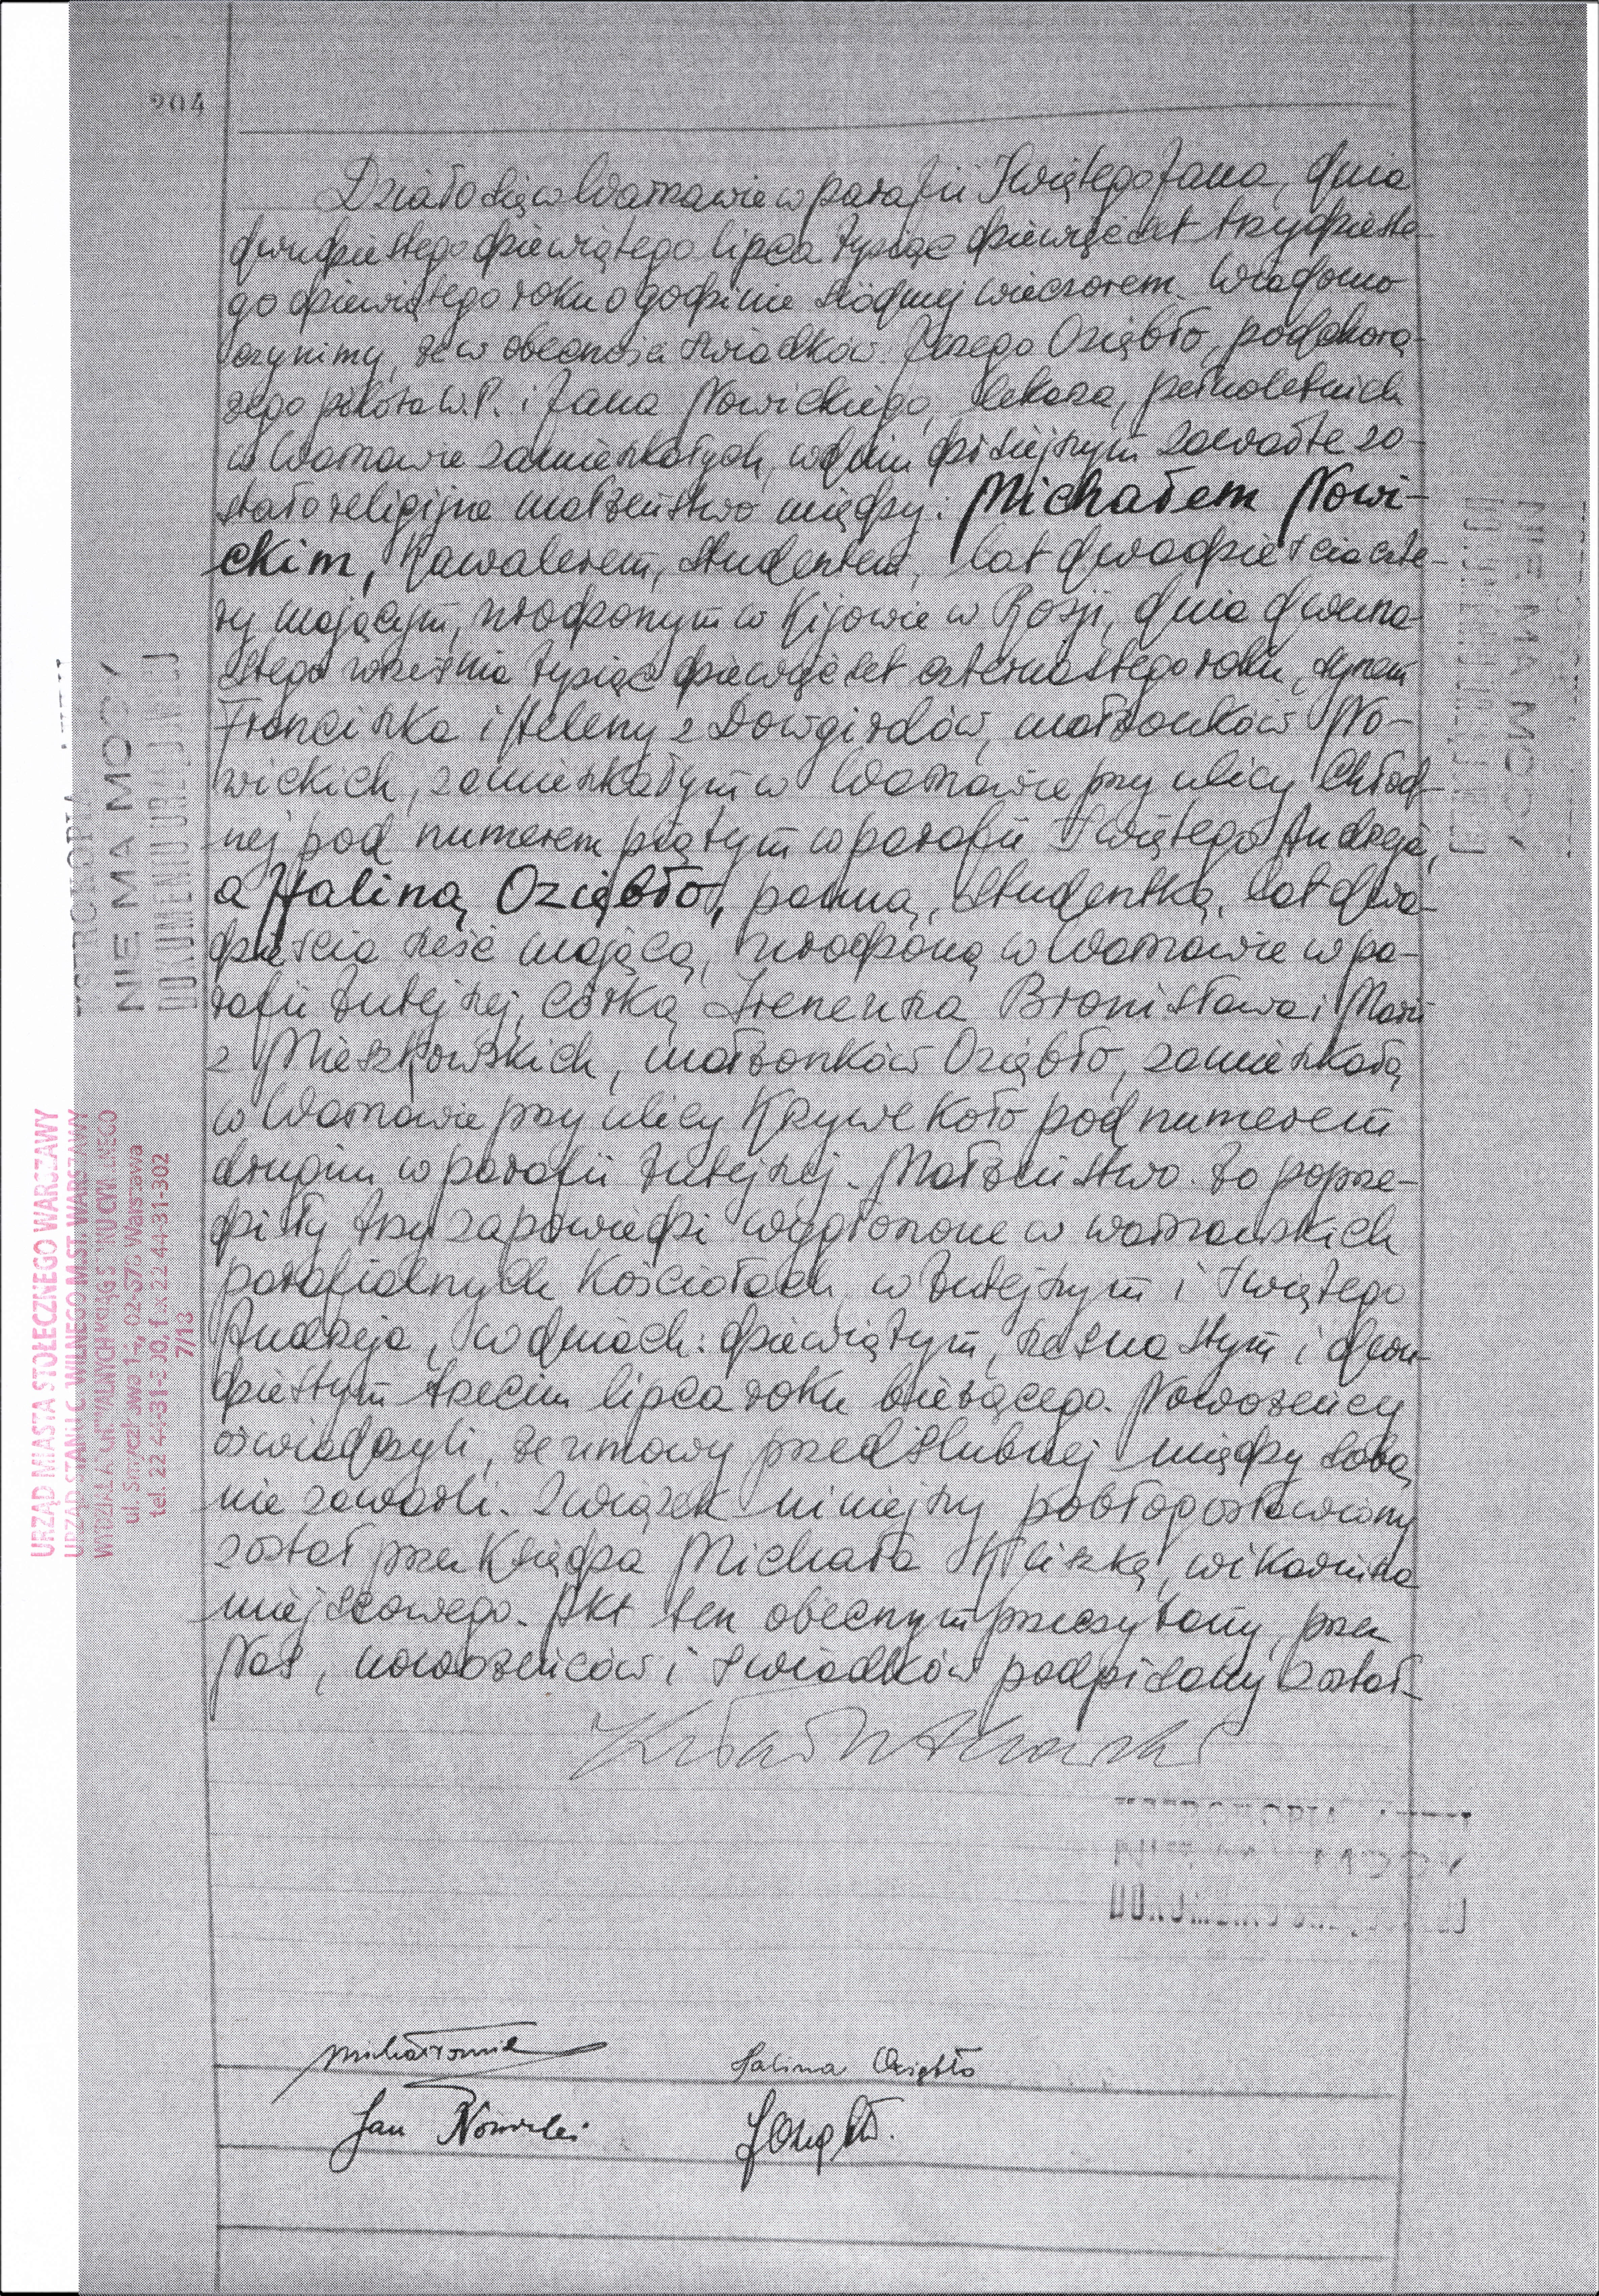 204
Działo się w Warszawie w parafii Świętego Jana, dnia
dwudziestego dziewiątego lipca tysiąc dziewięćset trzydzieste-
go dziewiątego roku o godzinie siódmej wieczorem. Wiadomo
czynimy, że w obecności świadków: Jerzego Oziębło, podchorą-
żego pilota W.P. i Jana Nowickiego, lekarza, pełnoletnich
w Warszawie zamieszkałych, w dniu dzisiejszym zawarte zo-
stało religijne małżeństwo między: Michałem Nowi-
ckim, kawalerem, studentem, lat dwadzieścia czte-
ry mającym, urodzonym w Kijowie w Rosji, dnia dwuna-
stego września tysiąc dziewięćset czternastego roku, synem
Franciszka i Heleny z Dowgirdów, małżonków No-
wickich, zamieszkałym w Warszawie przy ulicy Chłod-
nej pod numerem piątym w parafii Świętego Andrzeja,
a Haliną Oziębło, panną, studentką, lat dwa-
dzieścia sześć mającą, urodzoną w Warszawie w pa-
rafii tutejszej, córką Ireneusza Bronisława i Marii
z Mieszkowskich, małżonków Oziębło, zamieszkałą
w Warszawie przy ulicy Krzywe Koło pod numerem
drugim w parafii tutejszej. Małżeństwo to poprze-
dziły trzy zapowiedzi wygłoszone w warszawskich
parafialnych kościołach, w tutejszym i Świętego
Andrzeja, w dniach: dziewiątym, szesnastym i dwu-
dziestym trzecim lipca roku bieżącego. Nowożeńcy
oświadczyli, że umowy przedślubnej między sobą
nie zawarli. Związek niniejszy pobłogosławiony
został przez Księdza Michała Kliszkę, wikariusza
miejscowego. Akt ten obecnym przeczytany, przez
Nas, nowożeńców i świadków podpisany został.
Halina Oziębło
Jan Nowicki
NIE MA MOCY
DOKUMENTU URZĘDOWEJ
NIE MA MOCY
URZĄD MIASTA STOŁECZNEGO WARSZAWY
URZĄD STANU CYWILNEGO M.ST. WARSZAWY
WYDZIAŁ ARCHIWALNYCH KSIĄG STANU CYWILNEGO
ul. Smyczkowa 14, 02-678 Warszawa
tel. 22 44-31-300, fax 22 44-31-302
7/13